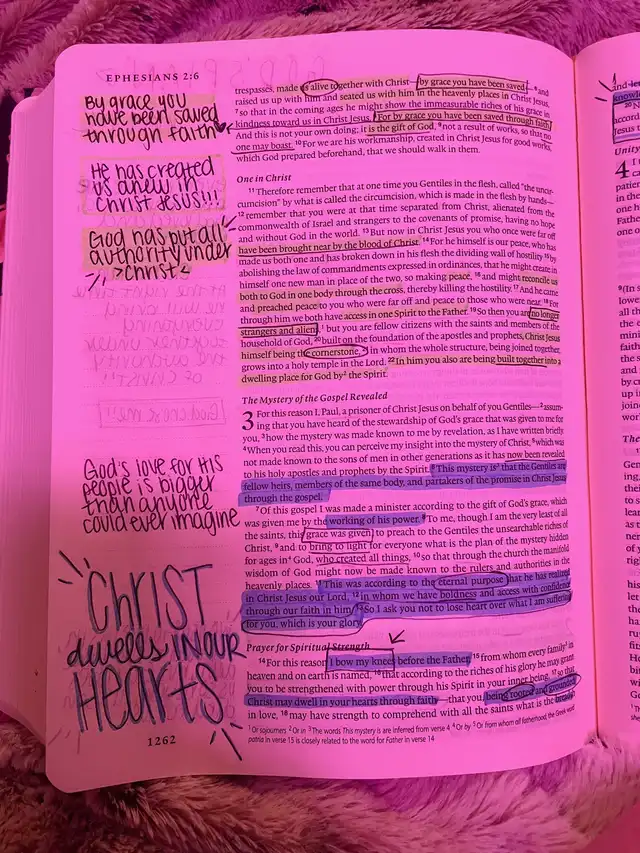 EPHESIANS 2:6
By grace you
have been saved
through faith
He has created
us anew in
Christ Jesus!!!
God has put all
authority under
>Christ<
God's love for His
people is bigger
than anyone
could ever imagine
CHRIST
dwells IN OUR
Hearts
1262
trespasses, made us alive together with Christ—by grace you have been saved— 6 and
raised us up with him and seated us with him in the heavenly places in Christ Jesus,
7 so that in the coming ages he might show the immeasurable riches of his grace in
kindness toward us in Christ Jesus. 8 For by grace you have been saved through faith.
And this is not your own doing; it is the gift of God, 9 not a result of works, so that no
one may boast. 10 For we are his workmanship, created in Christ Jesus for good works,
which God prepared beforehand, that we should walk in them.
One in Christ
11 Therefore remember that at one time you Gentiles in the flesh, called "the uncir-
cumcision" by what is called the circumcision, which is made in the flesh by hands—
12 remember that you were at that time separated from Christ, alienated from the
commonwealth of Israel and strangers to the covenants of promise, having no hope
and without God in the world. 13 But now in Christ Jesus you who once were far off
have been brought near by the blood of Christ. 14 For he himself is our peace, who has
made us both one and has broken down in his flesh the dividing wall of hostility 15 by
abolishing the law of commandments expressed in ordinances, that he might create in
himself one new man in place of the two, so making peace, 16 and might reconcile us
both to God in one body through the cross, thereby killing the hostility. 17 And he came
and preached peace to you who were far off and peace to those who were near. 18 For
through him we both have access in one Spirit to the Father. 19 So then you are no longer
strangers and aliens,1 but you are fellow citizens with the saints and members of the
household of God, 20 built on the foundation of the apostles and prophets, Christ Jesus
himself being the cornerstone, 21 in whom the whole structure, being joined together,
grows into a holy temple in the Lord. 22 In him you also are being built together into a
dwelling place for God by2 the Spirit.
The Mystery of the Gospel Revealed
3 For this reason I, Paul, a prisoner of Christ Jesus on behalf of you Gentiles— 2 assum-
ing that you have heard of the stewardship of God's grace that was given to me for
you, 3 how the mystery was made known to me by revelation, as I have written briefly.
4 When you read this, you can perceive my insight into the mystery of Christ, 5 which was
not made known to the sons of men in other generations as it has now been revealed
to his holy apostles and prophets by the Spirit. 6 This mystery is3 that the Gentiles are
fellow heirs, members of the same body, and partakers of the promise in Christ Jesus
through the gospel.
7 Of this gospel I was made a minister according to the gift of God's grace, which
was given me by the working of his power. 8 To me, though I am the very least of all
the saints, this grace was given, to preach to the Gentiles the unsearchable riches of
Christ, 9 and to bring to light for everyone what is the plan of the mystery hidden
for ages in4 God, who created all things, 10 so that through the church the manifold
wisdom of God might now be made known to the rulers and authorities in the
heavenly places. 11 This was according to the eternal purpose that he has realized
in Christ Jesus our Lord, 12 in whom we have boldness and access with confidence
through our faith in him. 13 So I ask you not to lose heart over what I am suffering
for you, which is your glory.
Prayer for Spiritual Strength
14 For this reason I bow my knees before the Father, 15 from whom every family5 in
heaven and on earth is named, 16 that according to the riches of his glory he may grant
you to be strengthened with power through his Spirit in your inner being, 17 so that
Christ may dwell in your hearts through faith—that you, being rooted and grounded
in love, 18 may have strength to comprehend with all the saints what is the breadth
1 Or sojourners 2 Or in 3 The words This mystery is are inferred from verse 4 4 Or by 5 Or from whom all fatherhood; the Greek word
patria in verse 15 is closely related to the word for Father in verse 14